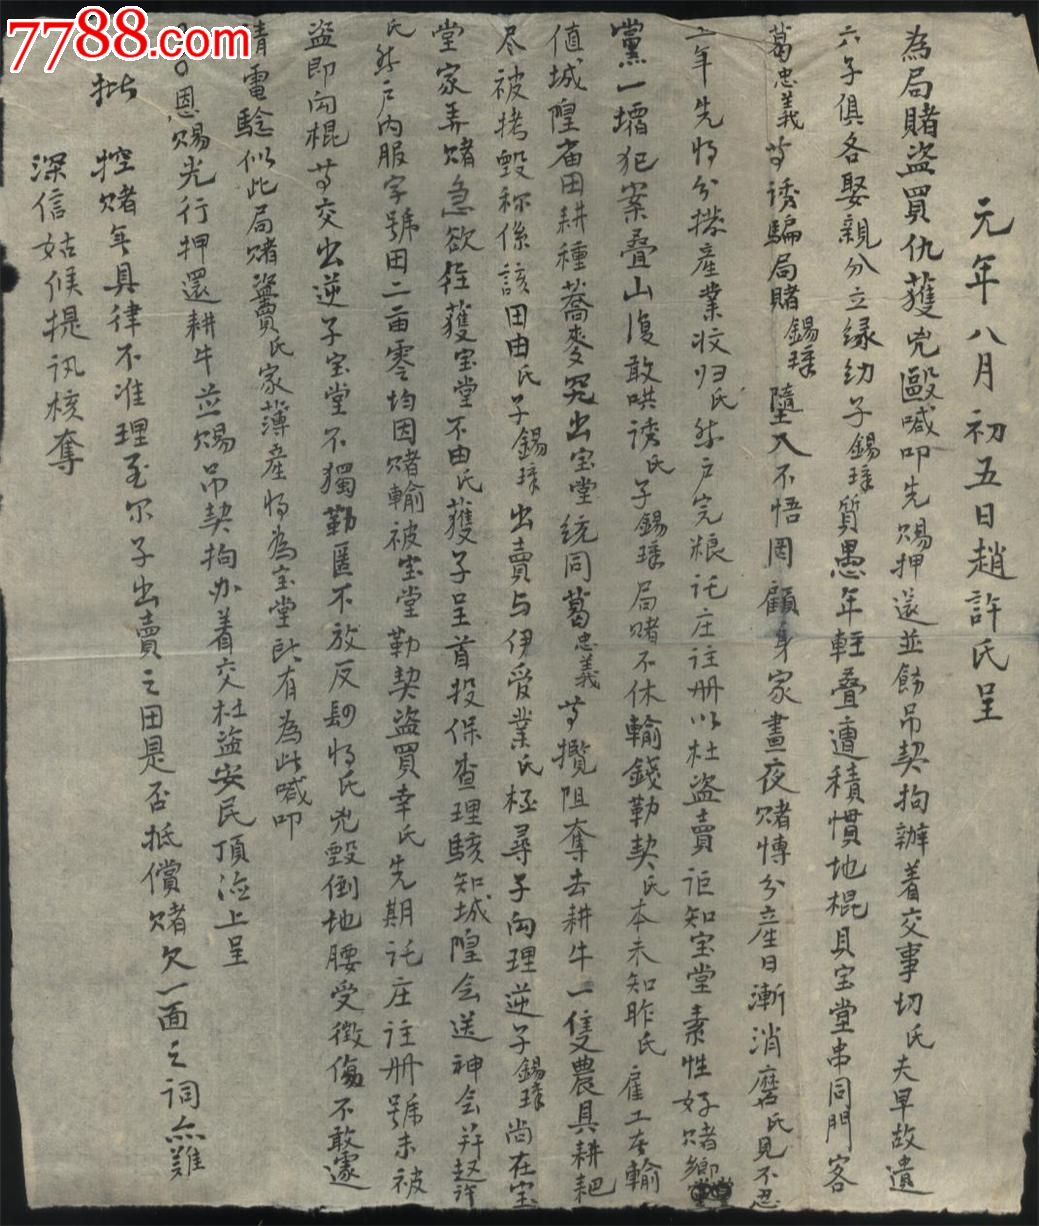 7788.com
元年八月初五日趙許氏呈
為局賭盜買仇獲兇毆喊叩先賜押送並飭吊契拘辦着交事切氏夫早故遺
六子俱各娶親分立緣幼子錫璋質愚年輕叠遭積慣地棍貝宝堂串同門客
葛忠義等誘騙局賭錫璋墮入不悟罔顧身家晝夜賭博分產日漸消磨氏見不忍
二年先將分撥產業收归氏炑户完粮託庄註册以杜盜賣詎知宝堂素性好賭鄉
黨一壋犯案叠山復敢哄誘氏子錫璋局賭不休輸錢勒契氏本未知昨氏雇工在輸
值城隍庙田耕種蕎麥突出宝堂統同葛忠義等攬阻奪去耕牛一隻農具耕耙
尽被拷毀称係該田由氏子錫璋出賣与伊受業氏極尋子向理逆子錫璋尚在宝
堂家弄賭急欲往獲宝堂不由氏獲子呈首投保查理駭知城隍会送神会并赵許
氏炑户内服字號田二亩零均因賭輸被宝堂勒契盜買幸氏先期託庄註册號未被
盜即向棍等交出逆子宝堂不獨勒匿不放反肆將氏兇毀倒地腰受徵傷不敢遽
請電騐似此局賭盜賣氏家薄產將為宝堂所有為此喊叩
恩賜光行押還耕牛並賜吊契拘办着交杜盜安民頂沾上呈
批
控賭無具律不准理至尔子出賣之田是否抵償賭欠一面之詞亦難
深信姑候提讯核奪